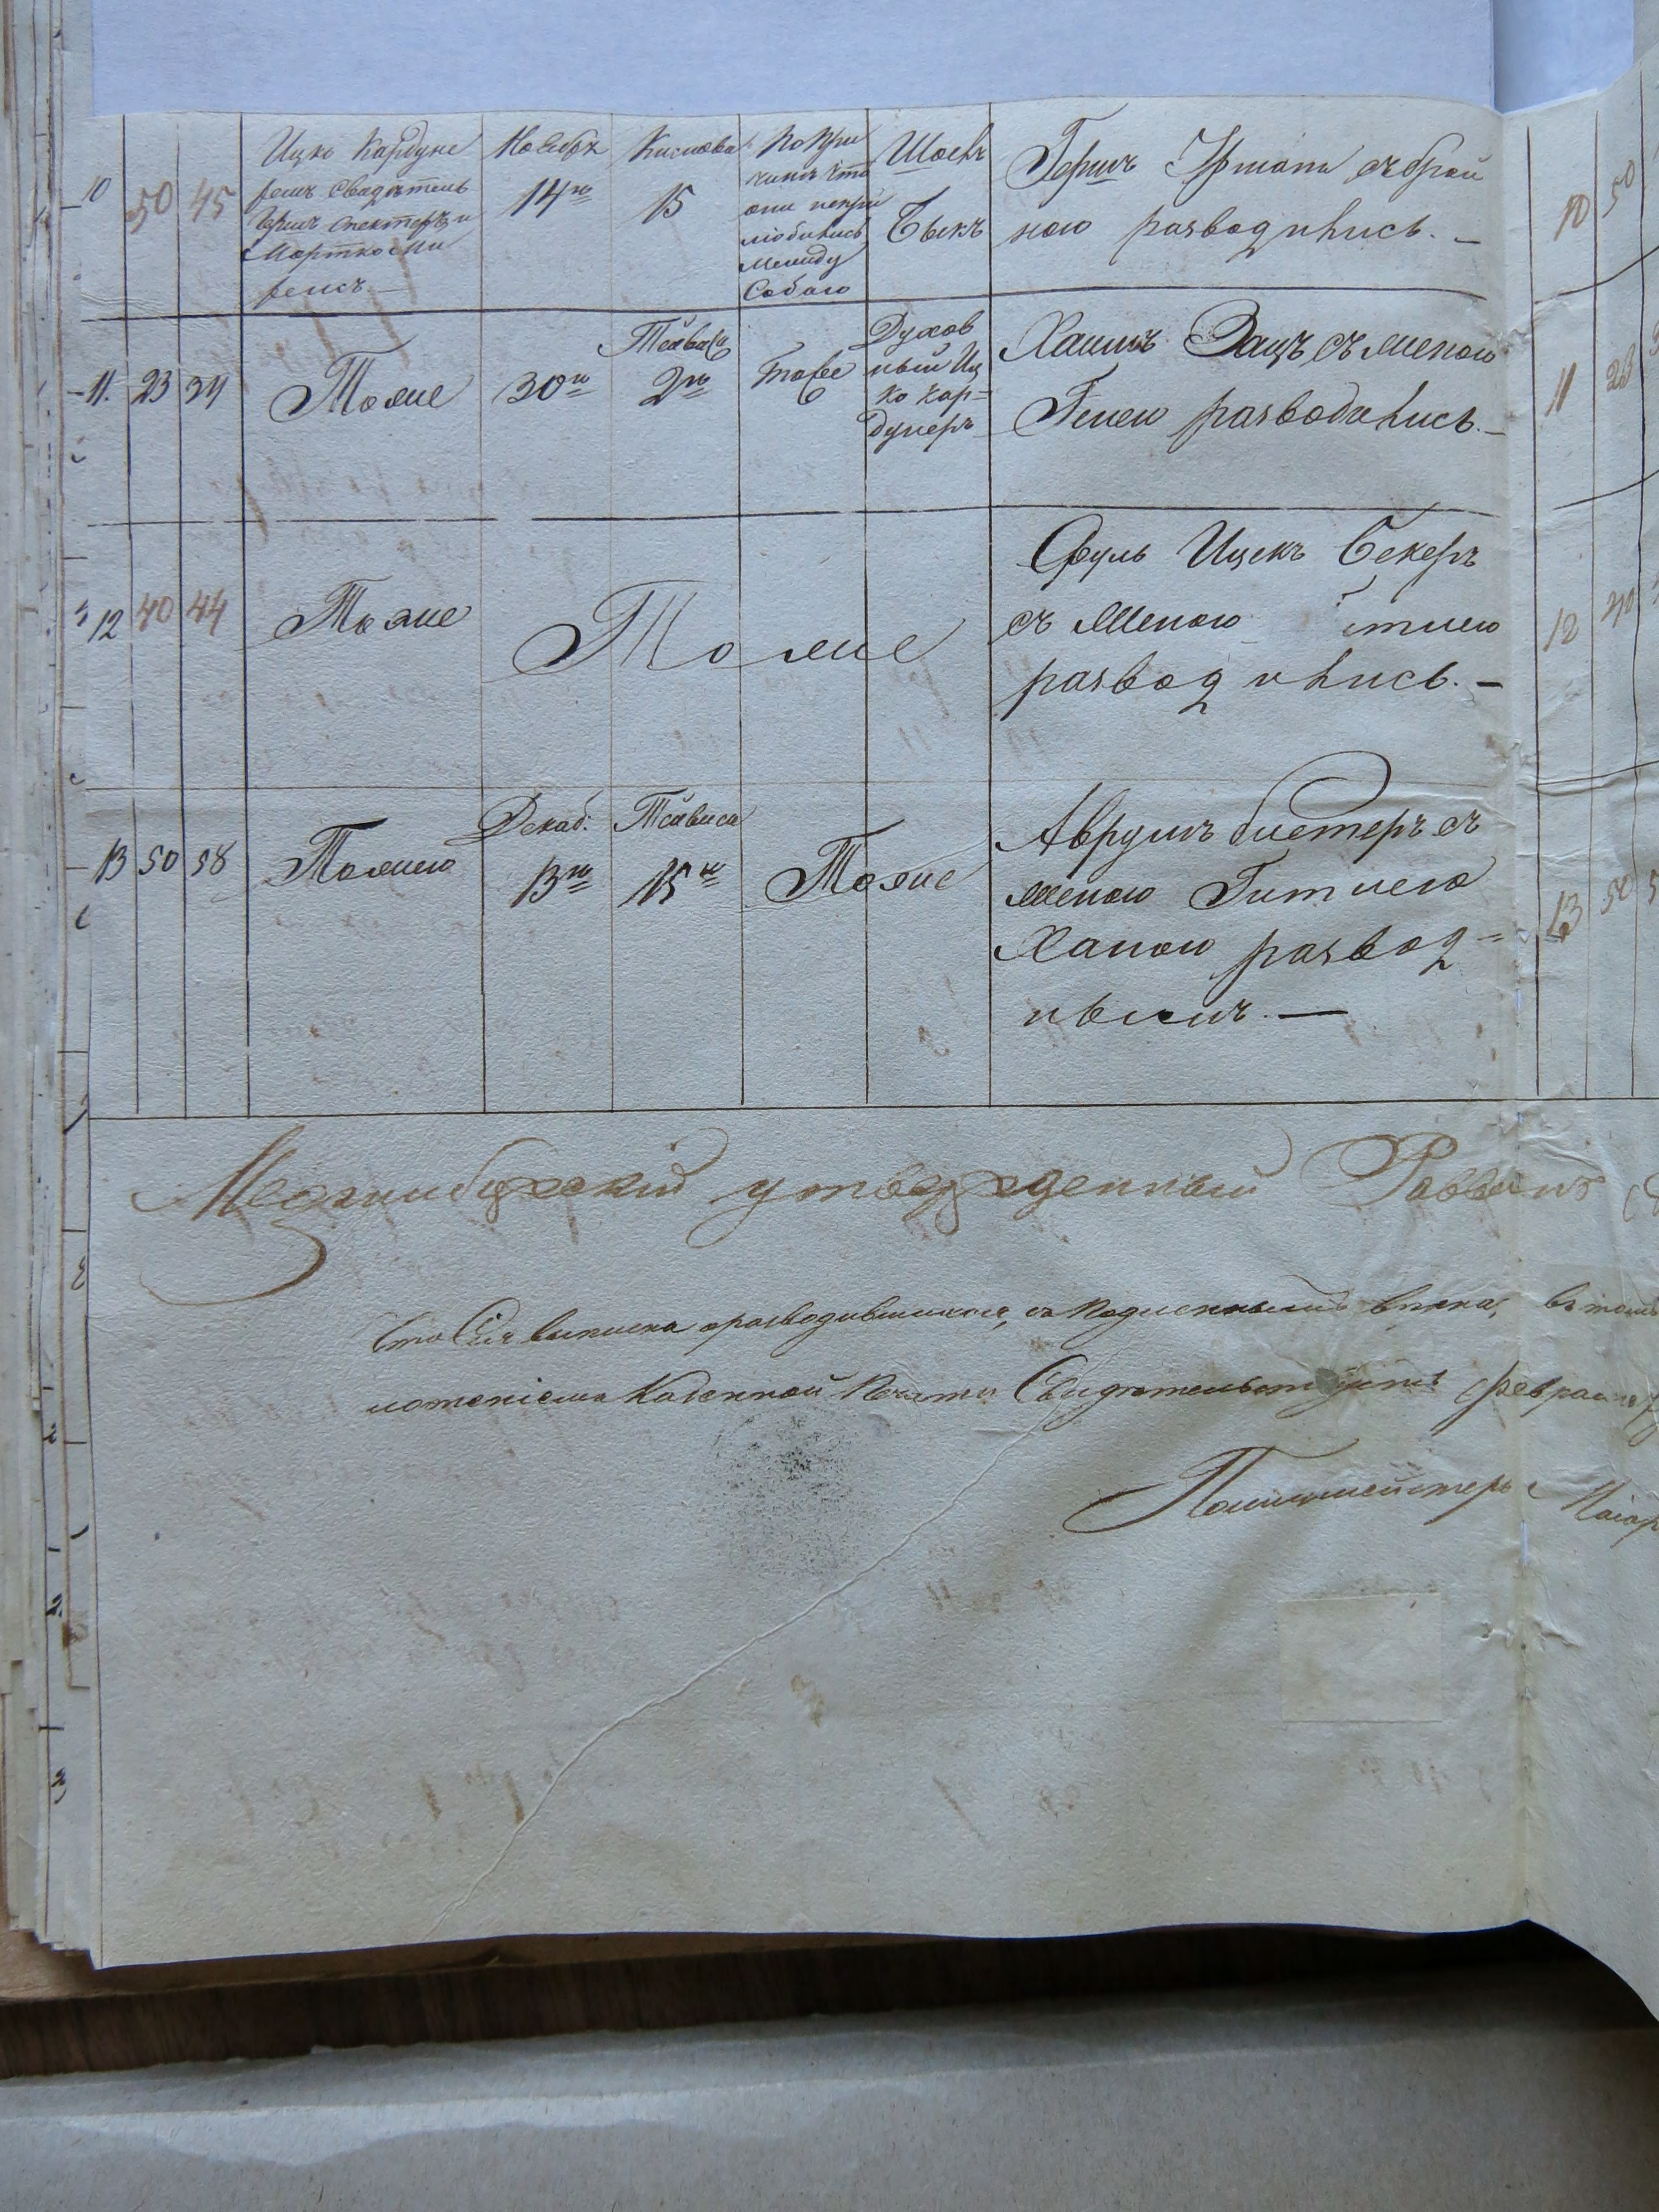 10
50
45
Ицко Кардуне
ромъ свидѣтель
Гершъ
Мортко
Ноября
14го
Кислова
15
По при
чинѣ что
они непри
любились
Между
Собою
Шоелъ
Быкъ
Гершъ съ брай
ною разводились. —
11.
23
Тоже
30го
Тейвиса
2го
тоже
Духов
ный Иц
ко Кар=
дунеръ
Хаимъ съ женою
Генею разводились. —
12
40
44
Тоже
Тоже
Сруль Ицекъ Бекеръ
съ Женою
разводились. —
13
50
58
Тожею
Декаб.
13го
Тейвиса
15го
Тоже
Аврумъ съ
женою Гитлею
Ханою развод=
10
50
11
23
12
40
13
50
5
Меджибужский утвержденный Раввинъ
Что Сія выписка оразводившихся, съ подлинными вѣрна, въ томъ
Казенной Печати Свидѣтельствуетъ Февраля
Полицмейстеръ Маіоръ